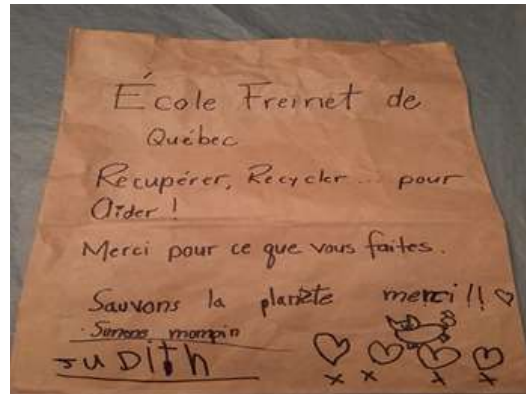 École Freinet de
Québec
Récupérer, Recycler... pour
Aider !
Merci pour ce que vous faites.
Sauvons la planète merci !! ♡
JUDith
x x x x